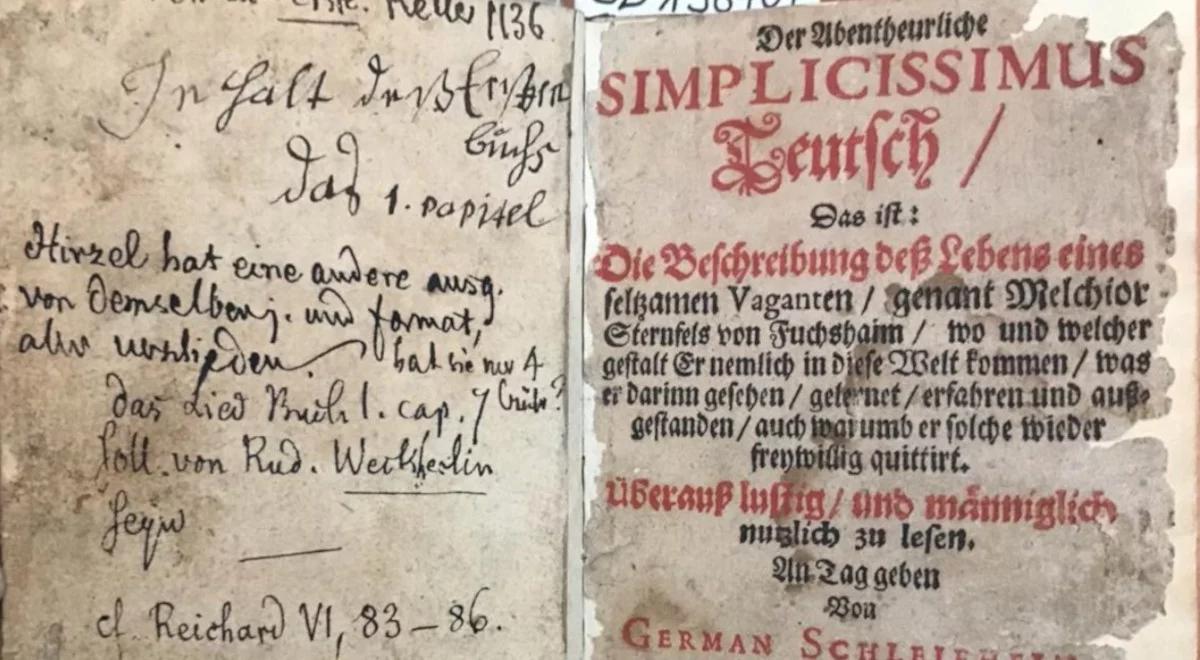 Keller 1136
Inhalt deß Ersten
buchs
das 1. capitel
Hirzel hat eine andere ausg.
von demselben j. und format,
aber verschieden. hat sie nur 4
das Lied Buch 1. cap. 7 bücher?
soll von Rud. Weckherlin
seyn
cf. Reichard VI, 83 – 86.
Der Abentheurliche
SIMPLICISSIMUS
Teutsch /
Das ist:
Die Beschreibung deß Lebens eines
seltzamen Vaganten / genant Melchior
Sternfels von Fuchshaim / wo und welcher
gestalt Er nemlich in diese Welt kommen / was
er darinn gesehen / gelernet / erfahren und auß-
gestanden / auch warumb er solche wieder
freywillig quittirt.
Überauß lustig / und männiglich
nutzlich zu lesen.
An Tag geben
Von
GERMAN SCHLEIFHEIM